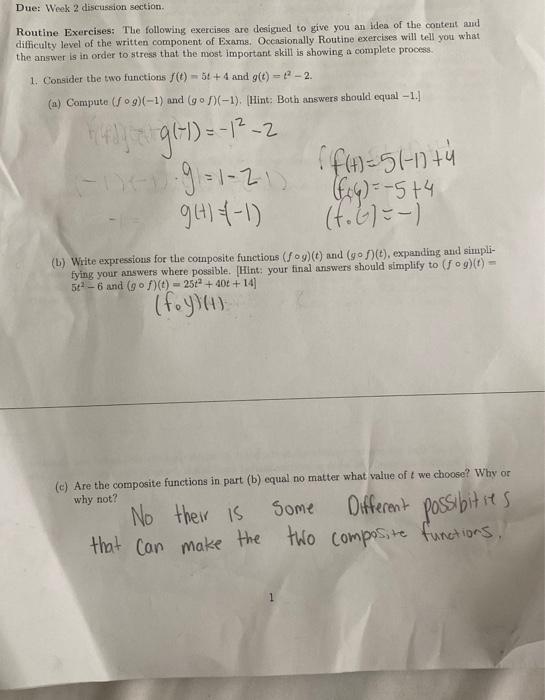 Due: Week 2 discussion section.
Routine Exercises: The following exercises are designed to give you an idea of the content and
difficulty level of the written component of Exams. Occasionally Routine exercises will tell you what
the answer is in order to stress that the most important skill is showing a complete process.
1. Consider the two functions f(t) = 5t + 4 and g(t) = t² − 2.
(a) Compute (f ∘ g)(−1) and (g ∘ f)(−1). [Hint: Both answers should equal −1.]
g(-1) = -1² -2
g = 1-2
g(t) = (-1)
f(t) = 5(-1)+4
(f∘g) = -5+4
(f∘G) = -1
(b) Write expressions for the composite functions (f∘g)(t) and (g∘f)(t), expanding and simpli-
fying your answers where possible. [Hint: your final answers should simplify to (f ∘ g)(t) =
5t² − 6 and (g ∘ f)(t) = 25t² + 40t + 14]
(f∘y)(t)
(c) Are the composite functions in part (b) equal no matter what value of t we choose? Why or
why not?
No their is some Different possibitites
that can make the two composite functions.
1